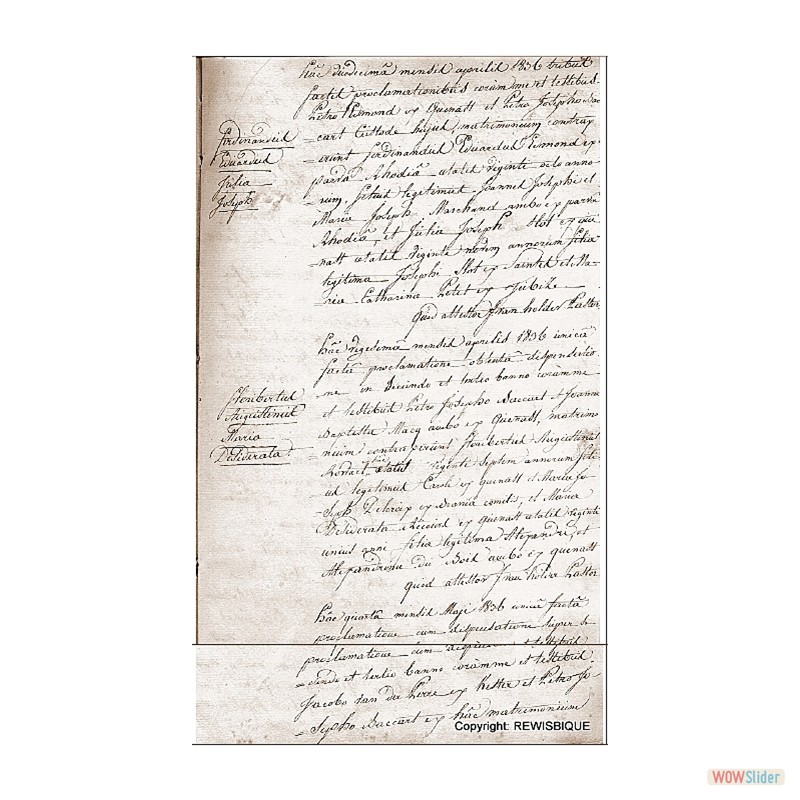 hac duodecimâ mensis aprilis 1836 tribus
factis proclamationibus coram me et testibus
Petro Edmond ex Quenast et Petro Josepho Bac-
cart Custode hujus matrimonium contrax-
erunt ferdinandus Eduardus Edmond ex
parva Rhodiâ ætatis viginti octo anno-
rum, filius legitimus Joannis Josephi et
Maria Joseph Marchand ambo ex parva
Rhodiâ, et Julia Joseph Hot ex que-
nast ætatis viginti novem annorum filia
legitima Josephi Hot ex Saintes et Ma-
ria Catharina Petet ex Tubize
quod attestor Fran holder Pastor
Ferdinandus
Eduardus
Julia
Joseph
hac vigesimâ mensis aprilis 1836 unicâ
factâ proclamatione obtentâ dispensatio-
ne in Secundo et tertio banno coram me
et testibus Petro Josepho Baccart et Joanne
Baptista Macq ambo ex Quenast, matrimo-
nium contraxerunt Honbertus Augustinus
ætatis viginti Septem annorum fili-
us legitimus Caroli ex quenast et Maria Jo-
Seph Delcroix ex Brania comitis, et Maria
Desiderata ex Quenast ætatis viginti
unius anno filia legitima Alexandri, et
Alexandrina du Bois ambo ex quenast
quod attestor Fran holder Pastor
Honbertus
Augustinus
Maria
Desiderata
hac quartâ mensis Maji 1836 unicâ factâ
proclamatione cum dispensatione Super Se-
proclamatione cum dispens et testibus
=cundo et tertio banno coram me et testibus
Jacobo van der Perre ex Kester et Petro Jo-
=Sepho Baccart ex hac matrimonium
Copyright: REWISBIQUE
WOWSlider